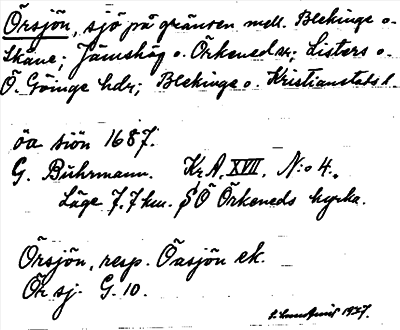 Örsjön, sjö på gränsen mell. Blekinge o.
Skåne; Jämshög o. Örkened snr; Listers o.
Ö. Göinge hdr; Blekinge o. Kristianstads l.
öa siön 1687.
G. Buhrmann. Kr.A. XVII, N:o 4.
Läge 7.7 km. SÖ Örkeneds kyrka.
Örsjön, resp. Öasjön ek.
Ör sj. G. 10.
1927.